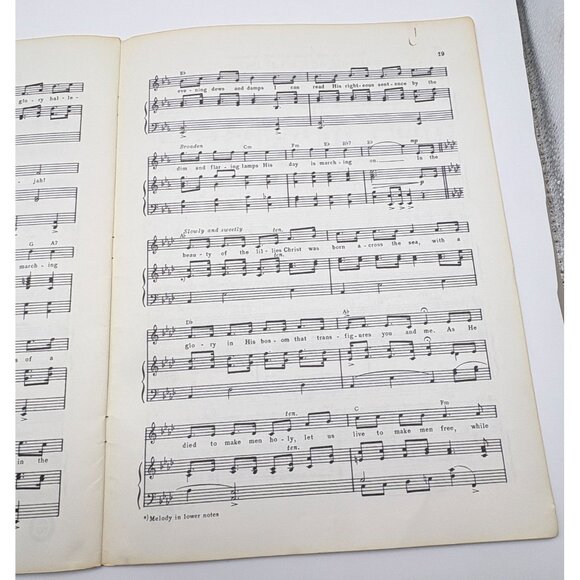 glo - ry hal - la -
jah!
G A7
march - ing
s of a
in the
19
E♭
eve - ning dews and damps I can read His right-eous sent-ence by the
Broaden Cm Fm E♭ B♭7 E♭ mp
dim and flar - ing lamps His day is march - ing on. In the
p
Slowly and sweetly ten.
A♭
beau - ty of the lil - lies Christ was born a - cross the sea, with a
ten.
D♭ A♭
glo - ry in His bos - om that trans - fig - ures you and me. As He
ten. C Fm
died to make men ho - ly, let us live to make men free, while
ten.
*) Melody in lower notes